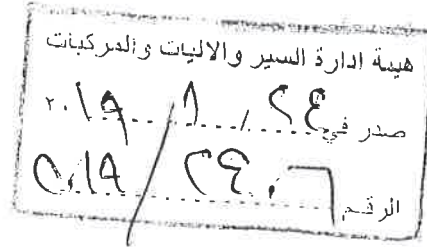 هيئة ادارة السير والاليات والمركبات
صدر في ٢٤ / ١ / ٢٠١٩
الرقم ٢٩٠٦ / ٢٠١٩